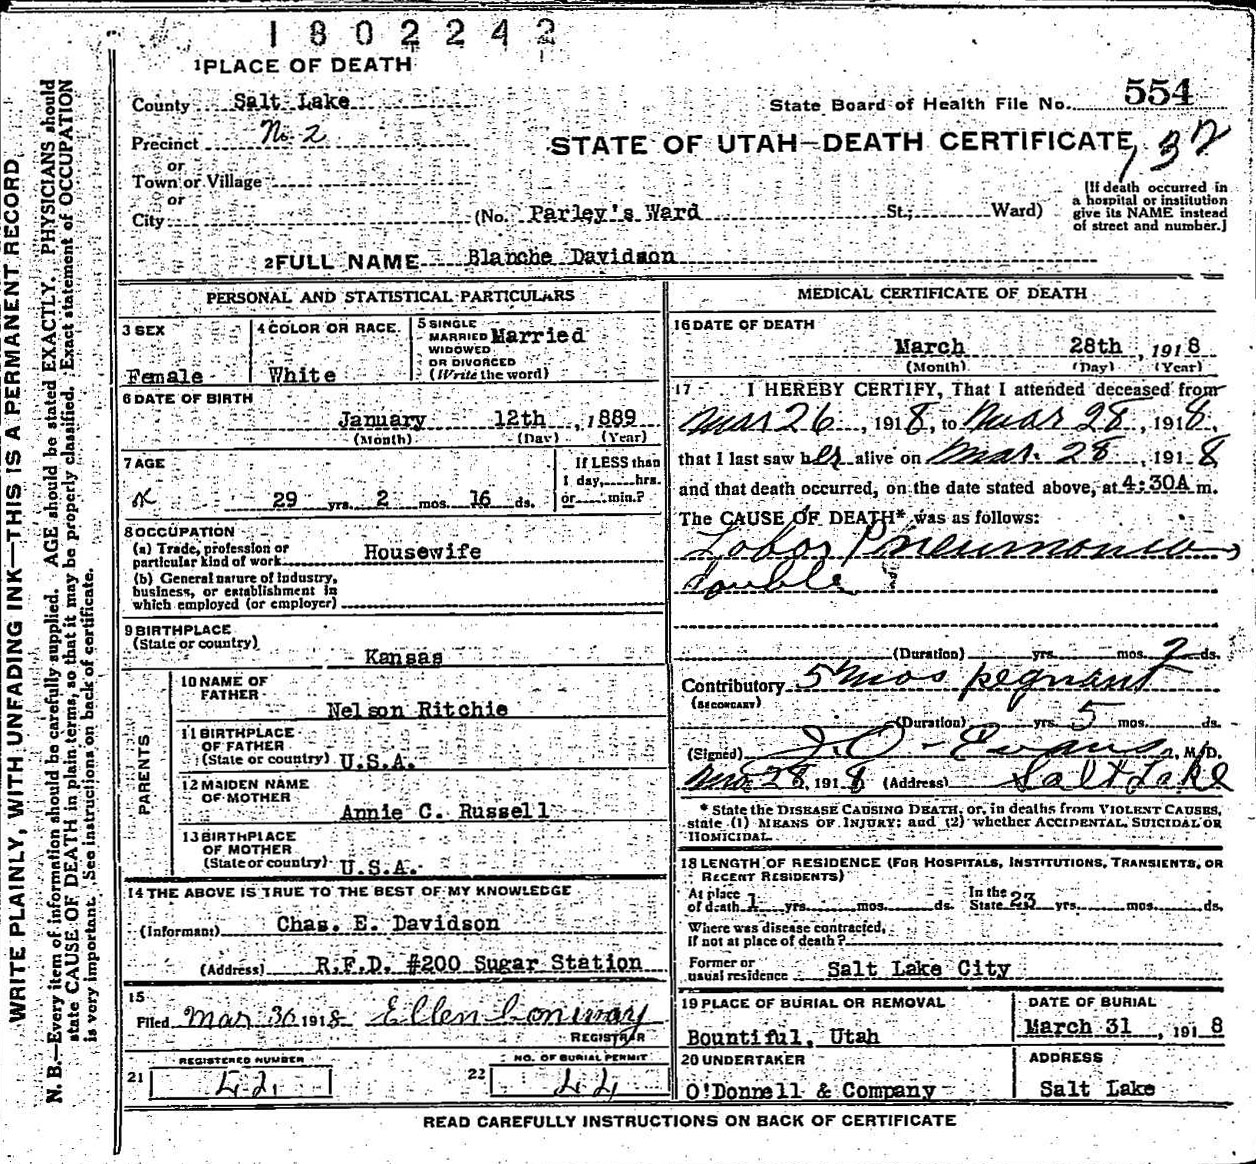 1802242
1 PLACE OF DEATH
County Salt Lake
State Board of Health File No. 554
Precinct No. 2
STATE OF UTAH—DEATH CERTIFICATE 132
or
Town or Village
or
City (No. Parley's Ward St.; Ward)
[If death occurred in
a hospital or institution
give its NAME instead
of street and number.]
2 FULL NAME Blanche Davidson
PERSONAL AND STATISTICAL PARTICULARS
3 SEX
Female
4 COLOR OR RACE.
White
5 SINGLE
MARRIED Married
WIDOWED
OR DIVORCED
(Write the word)
6 DATE OF BIRTH
January 12th, 1889
(Month) (Day) (Year)
7 AGE
29 yrs. 2 mos. 16 ds.
If LESS than
1 day, hrs.
or min.?
8 OCCUPATION
(a) Trade, profession or
particular kind of work Housewife
(b) General nature of industry,
business, or establishment in
which employed (or employer)
9 BIRTHPLACE
(State or country)
Kansas
PARENTS
10 NAME OF
FATHER
Nelson Ritchie
11 BIRTHPLACE
OF FATHER
(State or country) U.S.A.
12 MAIDEN NAME
OF MOTHER
Annie C. Russell
13 BIRTHPLACE
OF MOTHER
(State or country) U.S.A.
14 THE ABOVE IS TRUE TO THE BEST OF MY KNOWLEDGE
(Informant) Chas. E. Davidson
(Address) R.F.D. #200 Sugar Station
15
Filed Mar 30 1918 Ellen Conway
REGISTRAR
REGISTERED NUMBER
21
NO. OF BURIAL PERMIT
22 44
MEDICAL CERTIFICATE OF DEATH
16 DATE OF DEATH
March 28th, 1918
(Month) (Day) (Year)
17 I HEREBY CERTIFY, That I attended deceased from
Mar 26, 1918, to Mar 28, 1918,
that I last saw her alive on Mar. 28, 1918
and that death occurred, on the date stated above, at 4:30A m.
The CAUSE OF DEATH* was as follows:
Lobar Pneumonia,
double
(Duration) yrs. mos. 2 ds.
Contributory 5 mos pegnant
(SECONDARY)
(Duration) yrs. 5 mos. ds.
(Signed) J. O. Evans, M.D.
Mar 28, 1918 (Address) Salt Lake
* State the DISEASE CAUSING DEATH, or, in deaths from VIOLENT CAUSES,
state (1) MEANS OF INJURY; and (2) whether ACCIDENTAL, SUICIDAL OR
HOMICIDAL.
18 LENGTH OF RESIDENCE (FOR HOSPITALS, INSTITUTIONS, TRANSIENTS, OR
RECENT RESIDENTS)
At place
of death 1 yrs. mos. ds.
In the
State 23 yrs. mos. ds.
Where was disease contracted,
if not at place of death?
Former or
usual residence Salt Lake City
19 PLACE OF BURIAL OR REMOVAL
Bountiful, Utah
DATE OF BURIAL
March 31, 1918
20 UNDERTAKER
O'Donnell & Company
ADDRESS
Salt Lake
READ CAREFULLY INSTRUCTIONS ON BACK OF CERTIFICATE
WRITE PLAINLY, WITH UNFADING INK—THIS IS A PERMANENT RECORD
N. B.—Every item of information should be carefully supplied. AGE should be stated EXACTLY. PHYSICIANS should
state CAUSE OF DEATH in plain terms, so that it may be properly classified. Exact statement of OCCUPATION
is very important. See instructions on back of certificate.